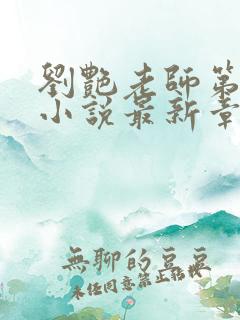 劉艷老師第
小說最新章
無聊的豆豆
未經同意禁止轉載